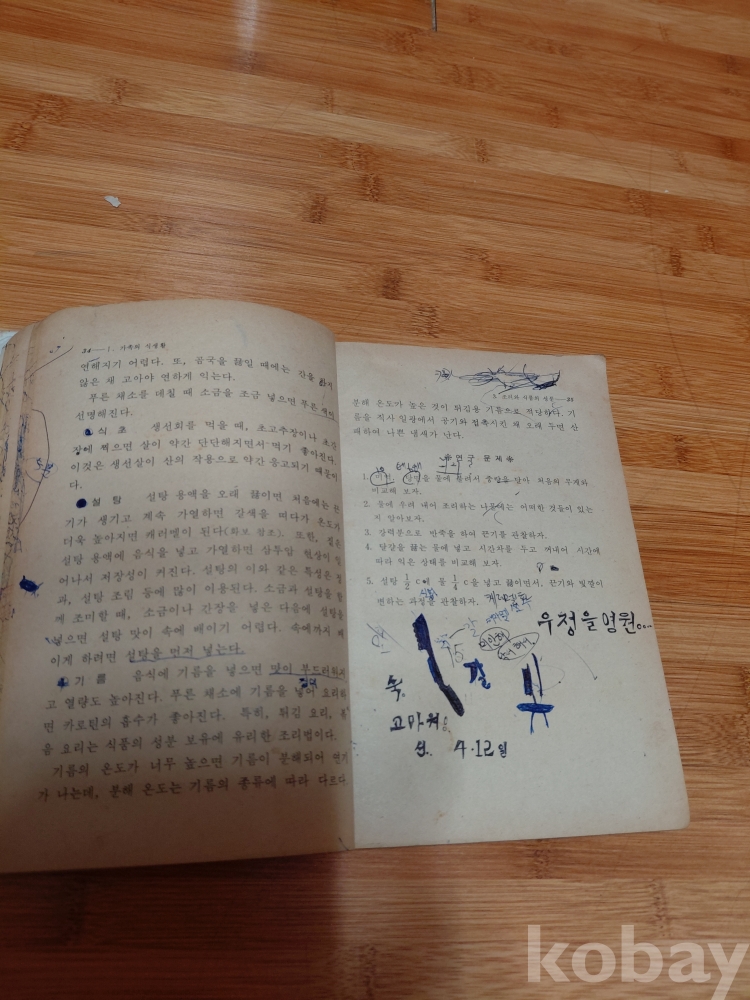 34——Ⅰ. 가족의 식생활
연해지기 어렵다. 또, 곰국을 끓일 때에는 간을 하지
않은 채 고아야 연하게 익는다.
푸른 채소를 데칠 때 소금을 조금 넣으면 푸른 색이
선명해진다.
식 초 생선회를 먹을 때, 초고추장이나 초간
장에 찍으면 살이 약간 단단해지면서 먹기 좋아진다.
이것은 생선살이 산의 작용으로 약간 응고되기 때문이
다.
설 탕 설탕 용액을 오래 끓이면 처음에는 끈
기가 생기고 계속 가열하면 갈색을 띠다가 온도가
더욱 높아지면 캐러멜이 된다(화보 참조). 또한, 짙은
설탕 용액에 음식을 넣고 가열하면 삼투압 현상이 일
어나서 저장성이 커진다. 설탕의 이와 같은 특성은 정
과, 설탕 조림 등에 많이 이용된다. 소금과 설탕을 함
께 조미할 때, 소금이나 간장을 넣은 다음에 설탕을
넣으면 설탕 맛이 속에 배이기 어렵다. 속에까지 배
이게 하려면 설탕을 먼저 넣는다.
4 기 름 음식에 기름을 넣으면 맛이 부드러워지
고 열량도 높아진다. 푸른 채소에 기름을 넣어 요리하
면 카로틴의 흡수가 좋아진다. 특히, 튀김 요리, 볶
음 요리는 식품의 성분 보유에 유리한 조리법이다.
기름의 온도가 너무 높으면 기름이 분해되어 연기
가 나는데, 분해 온도는 기름의 종류에 따라 다르다
3. 조리와 식품의 성분——35
분해 온도가 높은 것이 튀김용 기름으로 적당하다. 기
름을 직사 일광에서 공기와 접촉시킨 채 오래 두면 산
패하여 나쁜 냄새가 난다.
연구 문제
1. 미역, 당면을 물에 불려서 중량을 달아 처음의 무게와
비교해 보자.
2. 물에 우려 내어 조리하는 나물에는 어떠한 것들이 있는
지 알아보자.
3. 강력분으로 반죽을 하여 끈기를 관찰하자.
4. 달걀을 끓는 물에 넣고 시간차를 두고 꺼내어 시간에
따라 익은 상태를 비교해 보자.
5. 설탕 ½ C에 물 ¼ C을 넣고 끓이면서, 끈기와 빛깔이
변하는 과정을 관찰하자.
우정을 영원...
숙.
고마워
4.12일
kobay